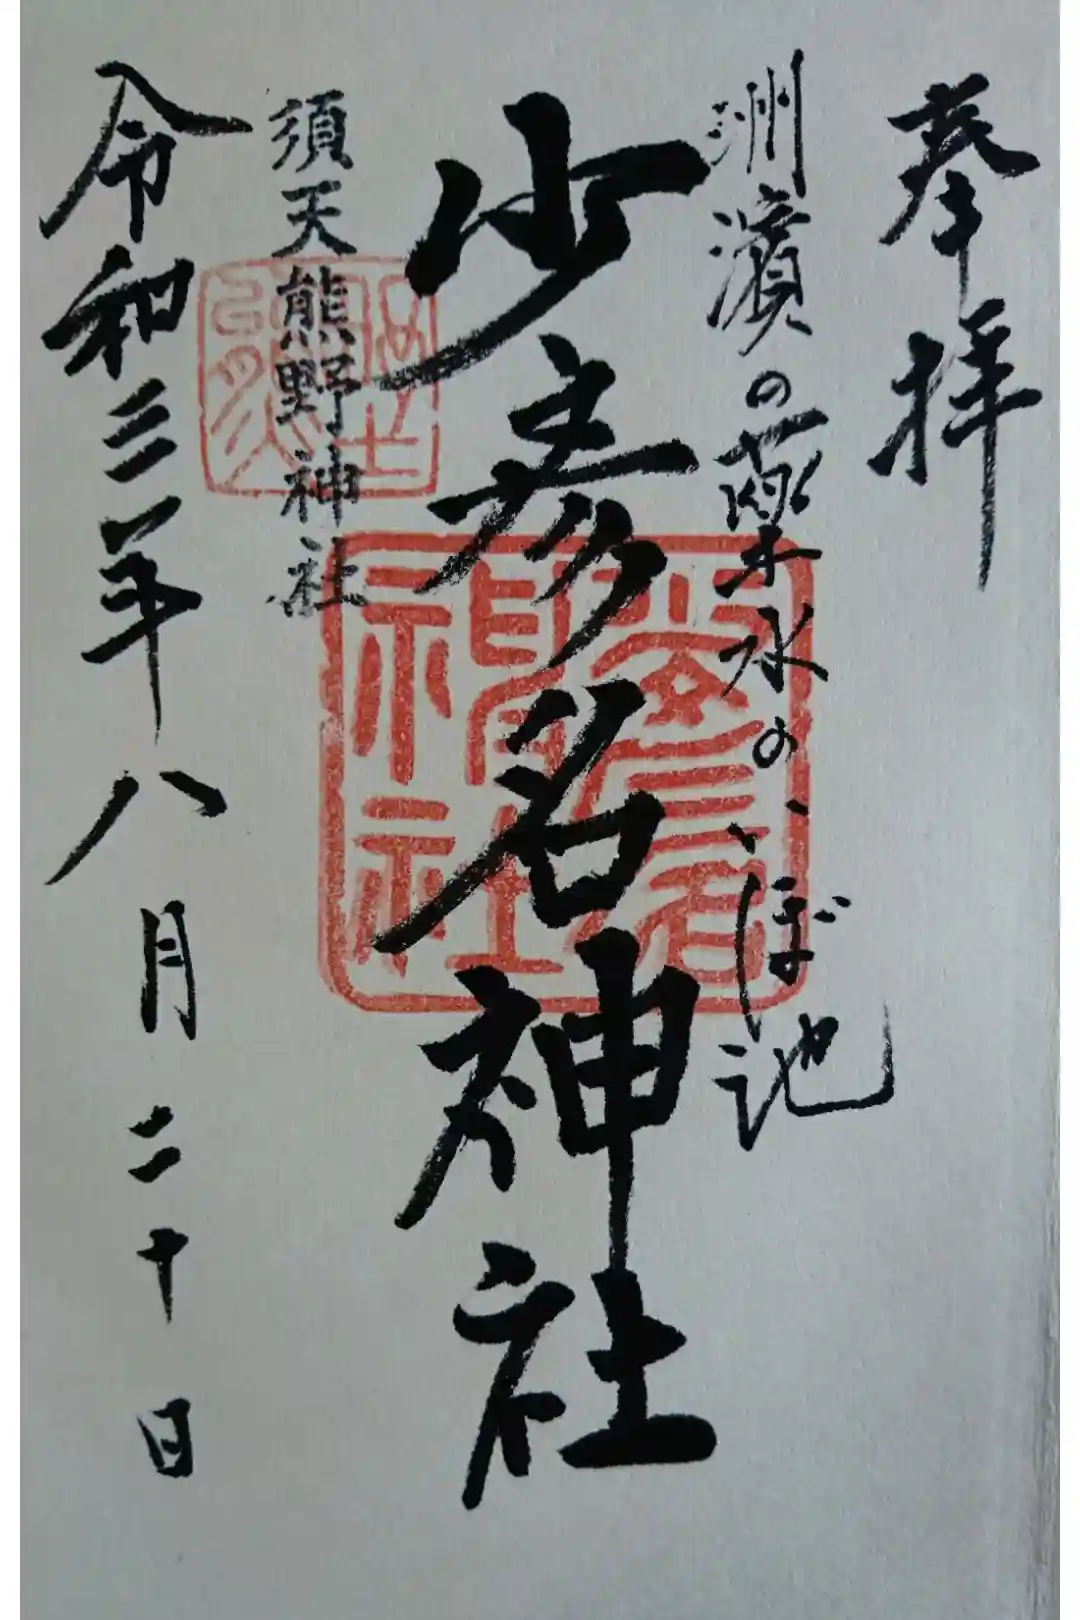 奉拝
洲濱の薬水のいぼ池
少彦名神社
須天熊野神社
令和三年八月二十日